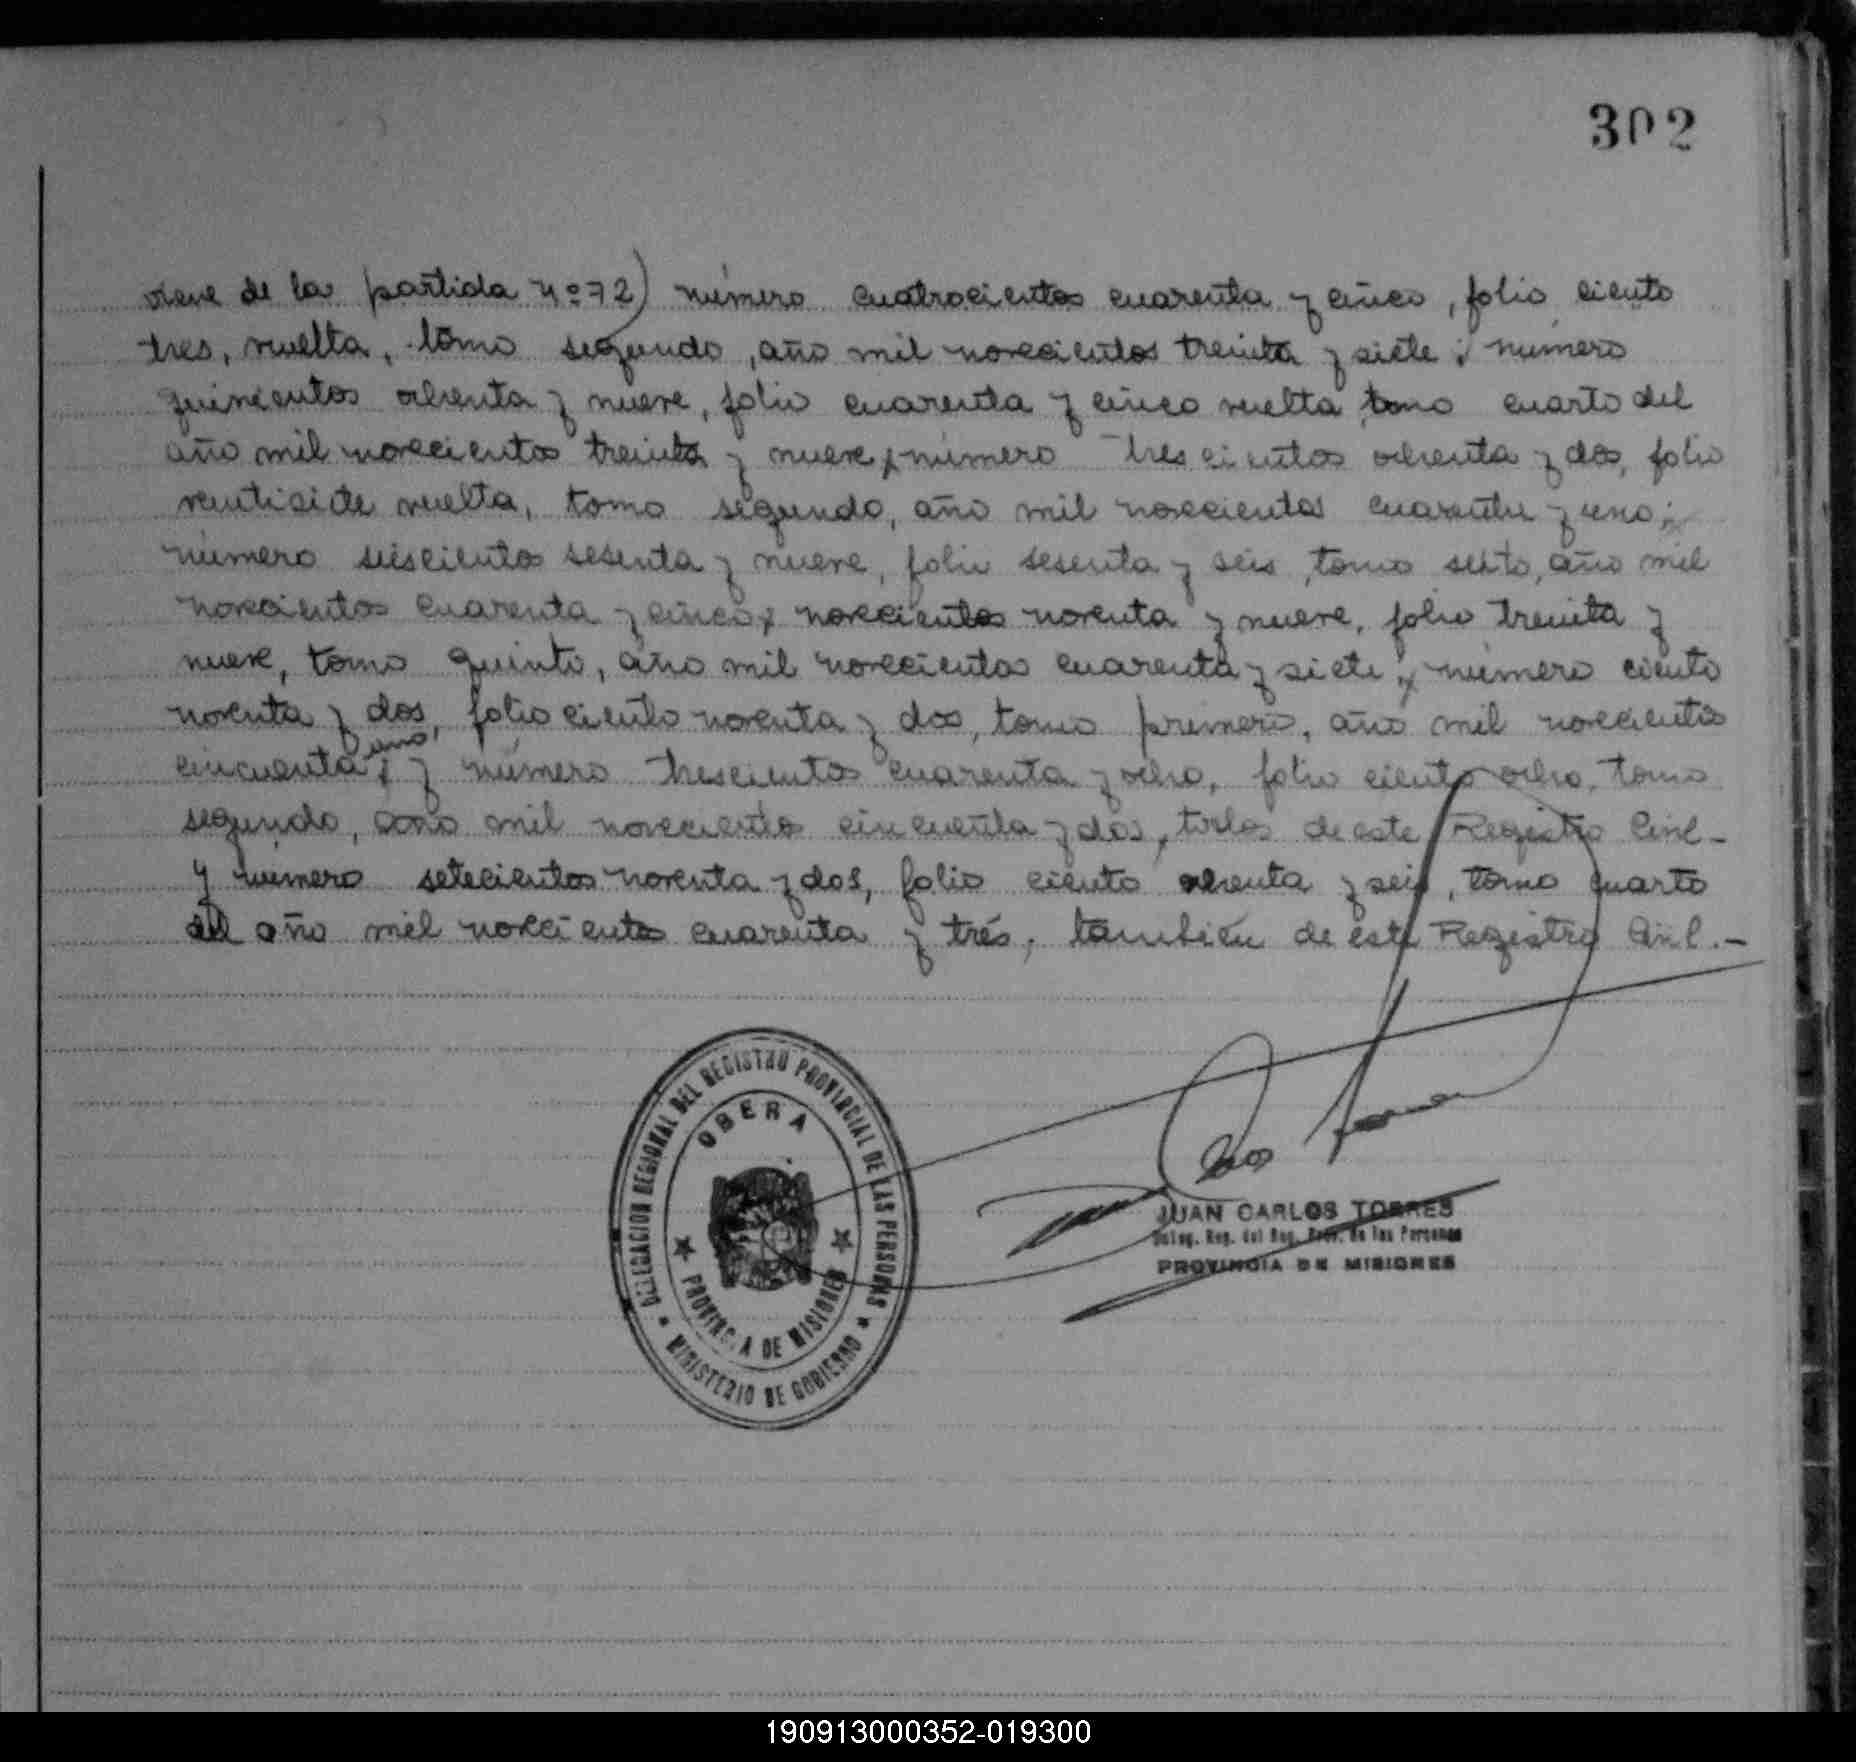 302
viene de la partida nº 72) número cuatrocientos cuarenta y cinco, folio ciento
tres, vuelta, tomo segundo, año mil novecientos treinta y siete; número
quinientos ochenta y nueve, folio cuarenta y cinco vuelta, tomo cuarto del
año mil novecientos treinta y nueve, número trescientos ochenta y dos, folio
ventisiete vuelta, tomo segundo, año mil novecientos cuarenta y uno;
número seiscientos sesenta y nueve, folio sesenta y seis, tomo sexto, año mil
novecientos cuarenta y cinco, novecientos noventa y nueve, folio treinta y
nueve, tomo quinto, año mil novecientos cuarenta y siete; número ciento
noventa y dos, folio ciento noventa y dos, tomo primero, año mil novecientos
cincuenta y uno, y número trescientos cuarenta y ocho, folio ciento ocho, tomo
segundo, año mil novecientos cincuenta y dos, todos de este Registro Civil-
y número setecientos noventa y dos, folio ciento ochenta y seis, tomo cuarto
del año mil novecientos cuarenta y trés, también de este Registro Civil.-
DELEGACION REGIONAL DEL REGISTRO PROVINCIAL DE LAS PERSONAS
OBERA
PROVINCIA DE MISIONES
MINISTERIO DE GOBIERNO
JUAN CARLOS TORRES
Deleg. Reg. del Reg. Prov. de las Personas
PROVINCIA DE MISIONES
190913000352-019300